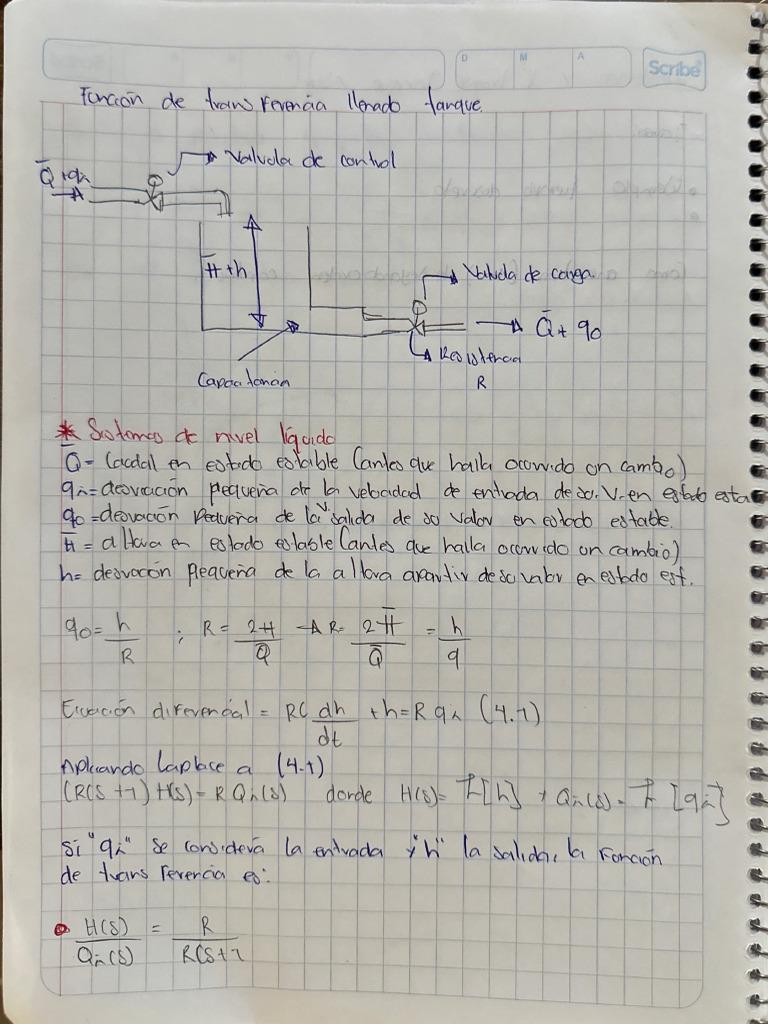 D M A
Scribe
Función de transferencia llenado tanque.
Q̄ + qi
Valvula de control
H̄ + h
Valvula de carga.
Q̄ + qo
Resistencia
R
Capacitancia
* Sistemas de nivel líquido
Q̄ = Caudal en estado estable (antes que halla ocurrido un cambio)
qi = desviación pequeña de la velocidad de entrada de su V. en estado esta
qo = desviación pequeña de la V. salida de su valor en estado estable.
H̄ = altura en estado estable (antes que halla ocurrido un cambio)
h = desviación pequeña de la altura apartir de su valor en estado est.
qo = h/R ; R = 2H/Q̄ → R = 2H̄/Q̄ = h/q
Ecuación diferencial = RC dh/dt + h = R qi (4.1)
Aplicando Laplace a (4.1)
(RCS + 1) H(s) = R Qi(s) donde H(s) = ℒ[h] y Qi(s) = ℒ[qi]
Si "qi" se considera la entrada y "h" la salida, la función
de transferencia es:
• H(s)/Qi(s) = R/RCS+1